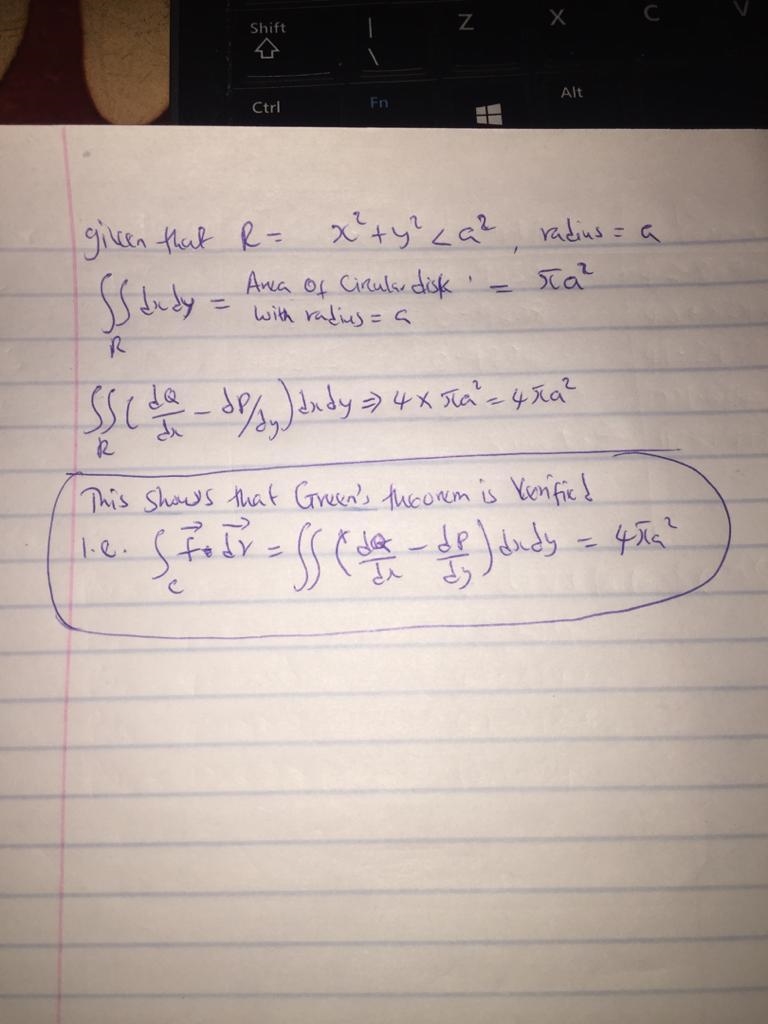 Shift | Z X C V
\
Ctrl Fn Alt
given that R = x² + y² < a², radius = a
∬_R dxdy = Area of Circular disk with radius = a = πa²
∬_R (dQ/dx - dP/dy) dxdy ⇒ 4 × πa² = 4πa²
This shows that Green's theorem is Verified
i.e. ∫_c f⃗ • dr⃗ = ∬ (dQ/dx - dP/dy) dxdy = 4πa²